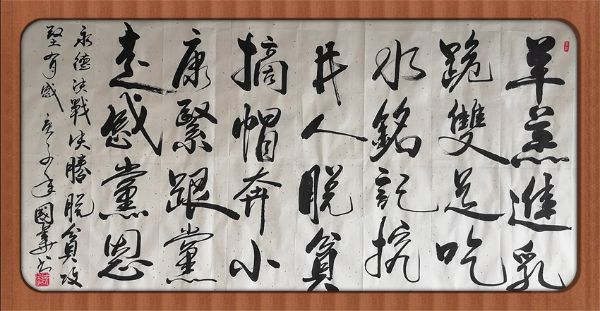 羊羔進乳
跪雙足吃
水銘記挖
井人脱貧
摘帽奔小
康緊跟黨
走感黨恩
永德决戰决勝脱貧攻
堅有感 庚子年國華书